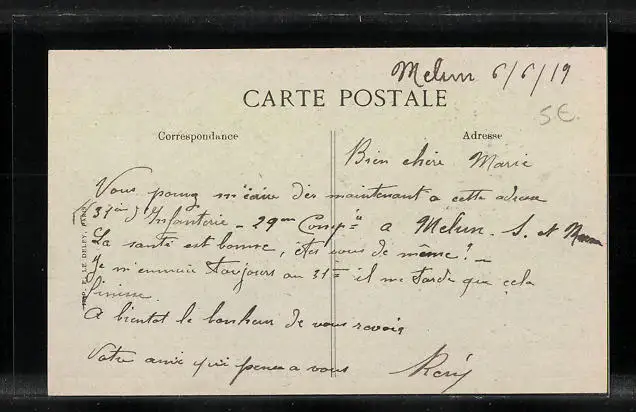 Melun 6/6/19
CARTE POSTALE
5€.
Correspondance
Adresse
Bien chère Marie
Vous pouvez m'écrire dès maintenant a cette adresse
31ème d'Infanterie - 29ème Compie a Melun. S. et Marne
La santé est bonne, êtes vous de même? -
Je m'ennuie toujours au 31e il me tarde que cela
finisse.
A bientot le bonheur de vous revoir
Votre amie qui pense a vous
IMP. E. LE DELEY, PARIS